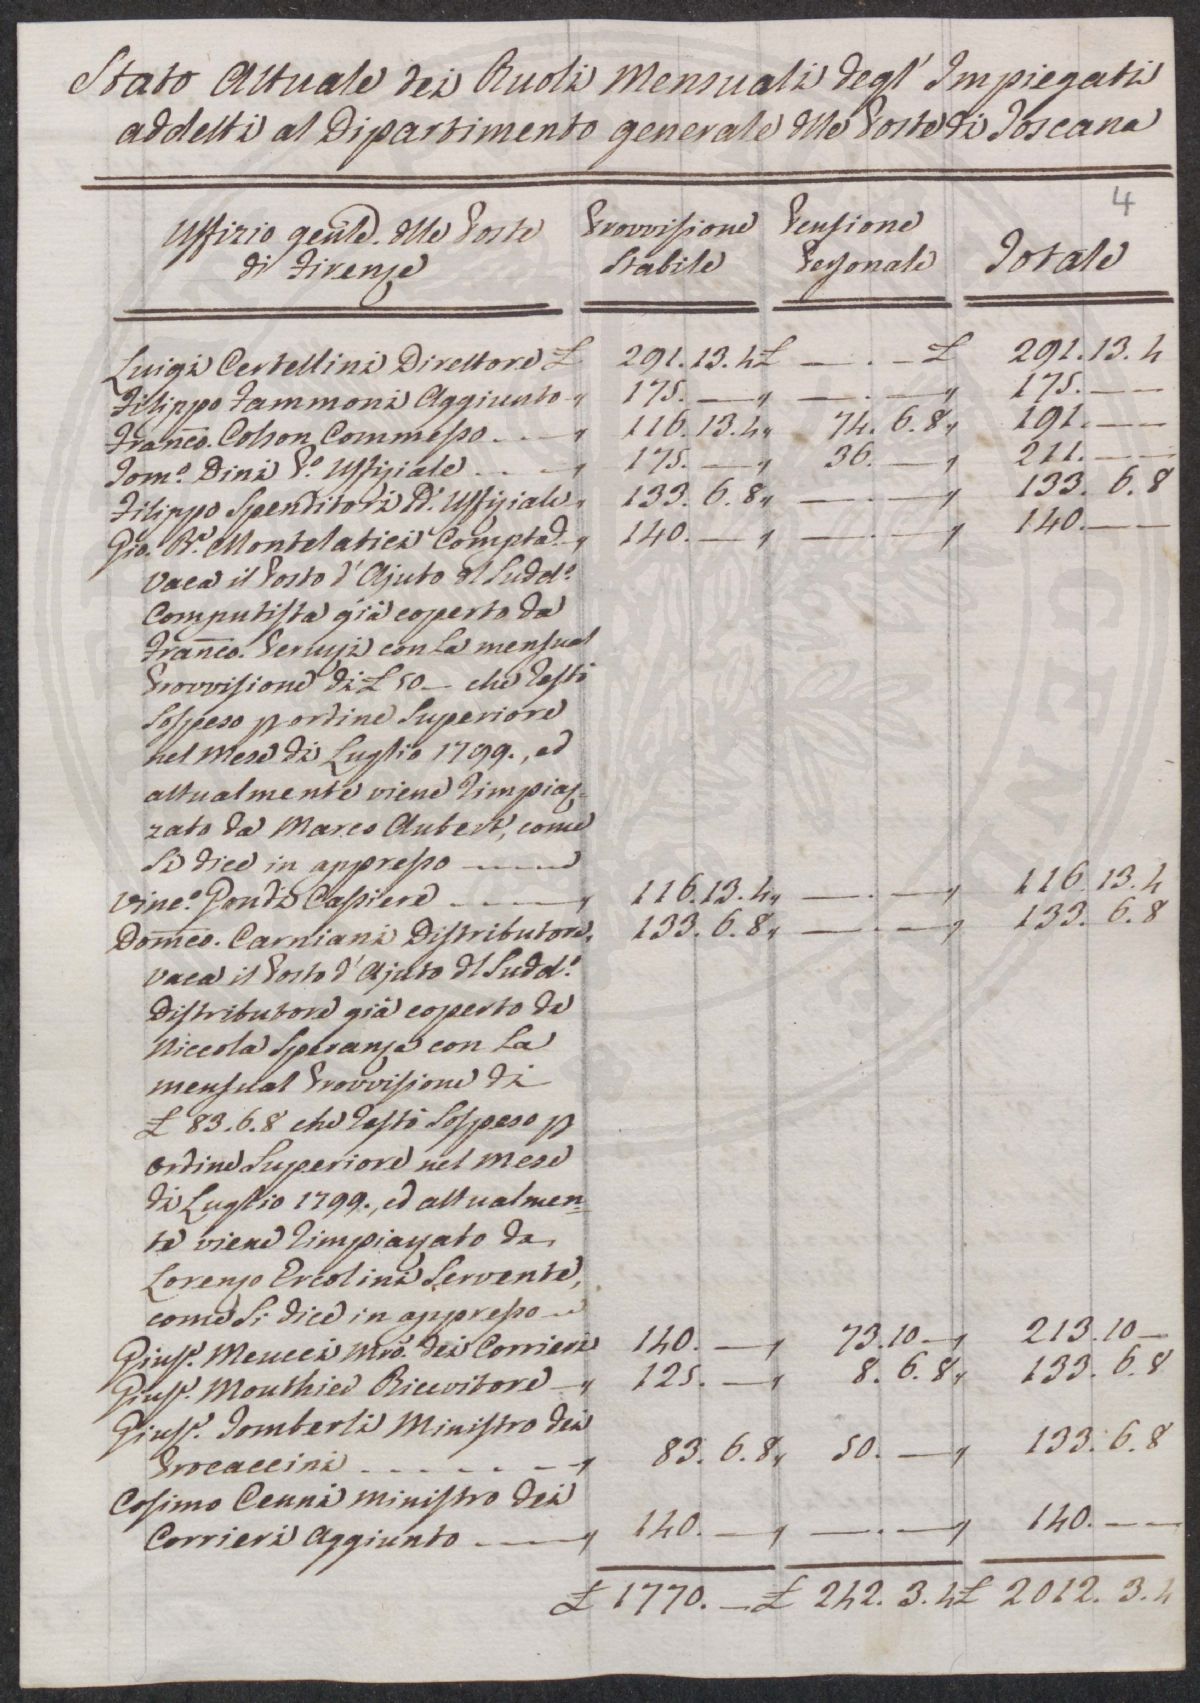 Stato Attuale dei Ruoli Mensuali degl' Impiegati
addetti al Dipartimento generale dlle Poste di Toscana
4
Uffizio genle. dlle Poste di Firenze | Provvisione Stabile | Pensione Personale | Totale
Luigi Certellini Direttore £ 291.13.4 £ —.— £ 291.13.4
Filippo Tammoni Aggiunto " 175.— " —.— " 175.——
Franco. Colson Commesso " 116.13.4 " 74.6.8 " 191.——
Tomo. Dini Po. Uffiziale " 175.— " 36.— " 211.——
Filippo Spenditori Do. Uffiziale " 133.6.8 " —.— " 133.6.8
Gio. Ba. Montelatici Computa. " 140.— " —.— " 140.——
Vaca il Posto d'Ajuto dl Suddo.
Computista già coperto da
Franco. Peruzzi con la mensual
Provvisione di £ 50— che restò
Sospeso p ordine Superiore
nel Mese di Luglio 1799., ed
attualmente viene rimpiaz-
zato da Marco Aubert, come
si dice in appresso
Vinco. Gondi Cassiere " 116.13.4 " —.— " 116.13.4
Domco. Carniani Distributore " 133.6.8 " —.— " 133.6.8
Vaca il Posto d'Ajuto dl Sudo.
Distributore già coperto da
Niccola Speranza con La
mensual Provvisione di
£ 83.6.8 che restò Sospeso p
Ordine Superiore nel Mese
di Luglio 1799., ed attualmen-
te viene rimpiazzato da
Lorenzo Ercolini Servente,
come Si dice in appresso
Giuse. Meucci Mro. dei Corrieri 140.— " 73.10— " 213.10—
Giuse. Mouthier Ricevitore " 125.— " 8.6.8 " 133.6.8
Giuse. Tomberli Ministro dei
Procaccini " 83.6.8 " 50.— " 133.6.8
Cosimo Cenni Ministro dei
Corrieri Aggiunto " 140.— " —.— " 140.——
£ 1770.— £ 242.3.4 £ 2012.3.4